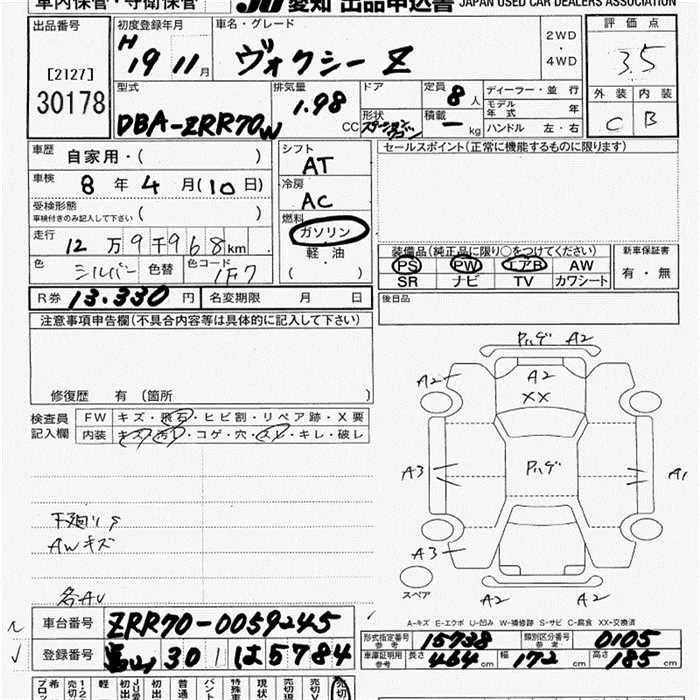 車内保管・守衛保管
JU 愛知 出品申込書 JAPAN USED CAR DEALERS ASSOCIATION
出品番号
[2127]
30178
初度登録年月
H 19 11月
車名・グレード
ヴォクシー Z
2WD
・
4WD
評価点
3.5
外装 内装
C B
型式
DBA-ZRR70W
排気量
1.98 CC
ドア
形状
ステーションワゴン
定員
8人
積載
ー kg
ディーラー・並行
モデル年式 年
ハンドル 左・右
車歴 自家用・( )
車検 8年4月(10日)
受検形態
車検付きのみ記入して下さい ( )
走行 12万9千968km
色 シルバー 色替 色コード 1F7
シフト
AT
冷房
AC
燃料
ガソリン
・
軽油
( ・ )
セールスポイント(正常に機能するものに限ります)
装備品(純正品に限り○をつけてください)
PS PW エアB AW
SR ナビ TV カワシート
新車保証書
有・無
R券 13.330円 名変期限 月 日
後日品
注意事項申告欄(不具合内容等は具体的に記入して下さい)
修復歴 有(箇所 )
検査員記入欄
FW キズ・飛石・ヒビ割・リペア跡・X要
内装 キズ・汚レ・コゲ・穴・スレ・キレ・破レ
下廻リサ
AWキズ
各AU
A2
A2
A2
XX
A3
A1
A3
スペア
A2 A2
A-キズ E-エクボ U-凹み W-補修跡 S-サビ C-腐食 XX-交換済
車台番号 ZRR70-0059245
登録番号 富山 301 は5784
型式指定番号 参考 15738
類別区分番号 参考 0105
車庫証明用 参考 長さ 464cm 幅 172cm 高さ 185cm